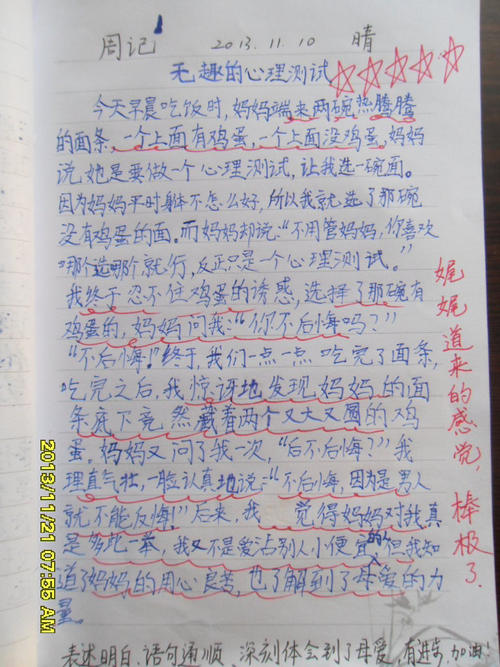 周记 2013.11.10 晴
无趣的心理测试
今天早晨吃饭时,妈妈端来两碗热腾腾
的面条,一个上面有鸡蛋,一个上面没鸡蛋。妈妈
说她是要做一个心理测试,让我选一碗面。
因为妈妈平时身体不怎么好,所以我就选了那碗
没有鸡蛋的面。而妈妈却说:“不用管妈妈,你喜欢
哪个选哪个就行,反正只是一个心理测试。”
我终于忍不住鸡蛋的诱惑,选择了那碗有
鸡蛋的,妈妈问我:“你不后悔吗?”
“不后悔!”终于,我们一点一点吃完了面条,
吃完之后,我惊讶地发现妈妈的面
条底下竟然藏着两个又大又圆的鸡
蛋。妈妈又问了我一次,“后不后悔?”我
理直气壮,一脸认真地说:“不后悔,因为是男人
就不能反悔!”后来,我觉得妈妈对我真
是多此一举,我又不是爱沾别人小便宜的人,但我知
道了妈妈的用心良苦,也了解到了母爱的力
量。
娓娓道来的感觉,棒极了.
表述明白、语句通顺、深刻体会到了母爱,有进步,加油!
2013/11/21 07:55 AM